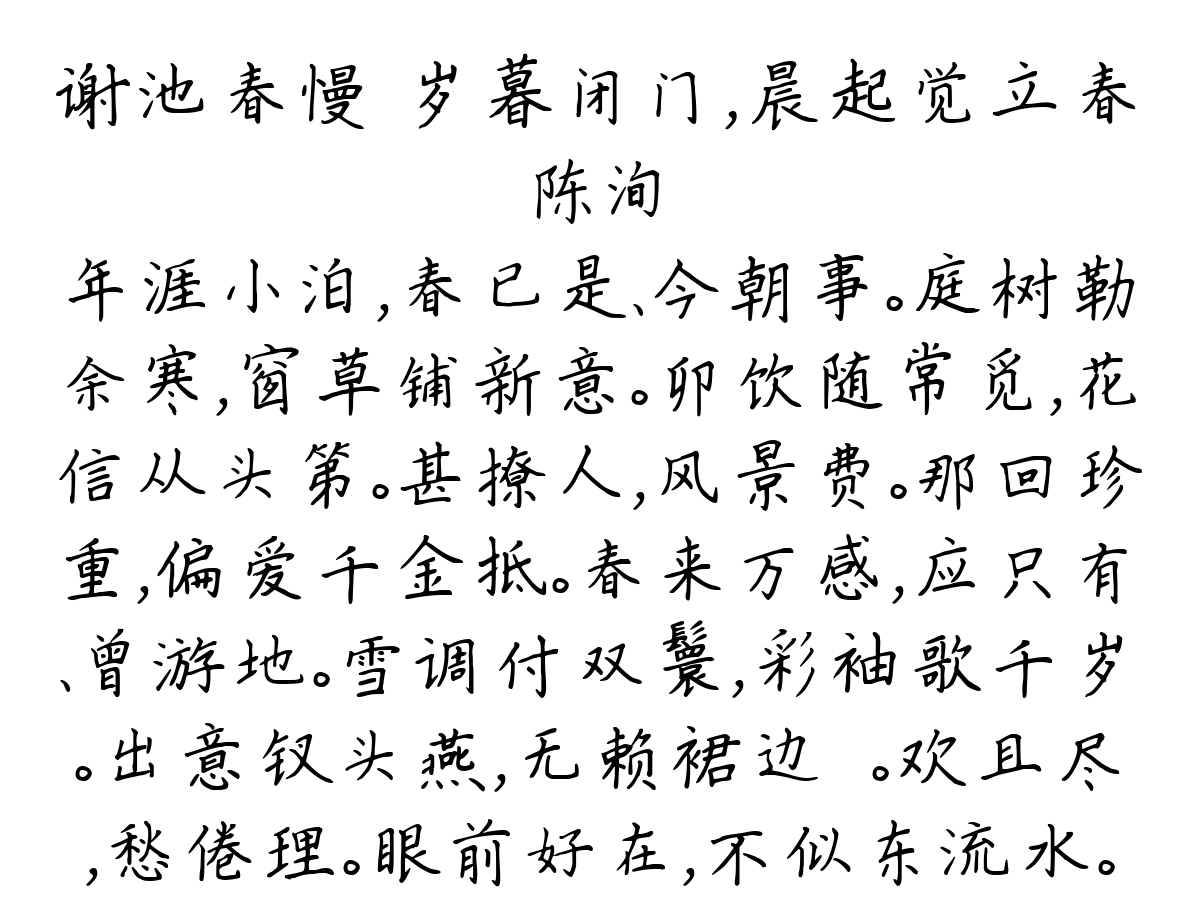 谢池春慢 岁暮闭门,晨起觉立春
陈洵
年涯小泊,春已是、今朝事。庭树勒
余寒,窗草铺新意。卯饮随常觅,花
信从头第。甚撩人,风景费。那回珍
重,偏爱千金抵。春来万感,应只有
、曾游地。雪调付双鬟,彩袖歌千岁
。出意钗头燕,无赖裙边 。欢且尽
,愁倦理。眼前好在,不似东流水。